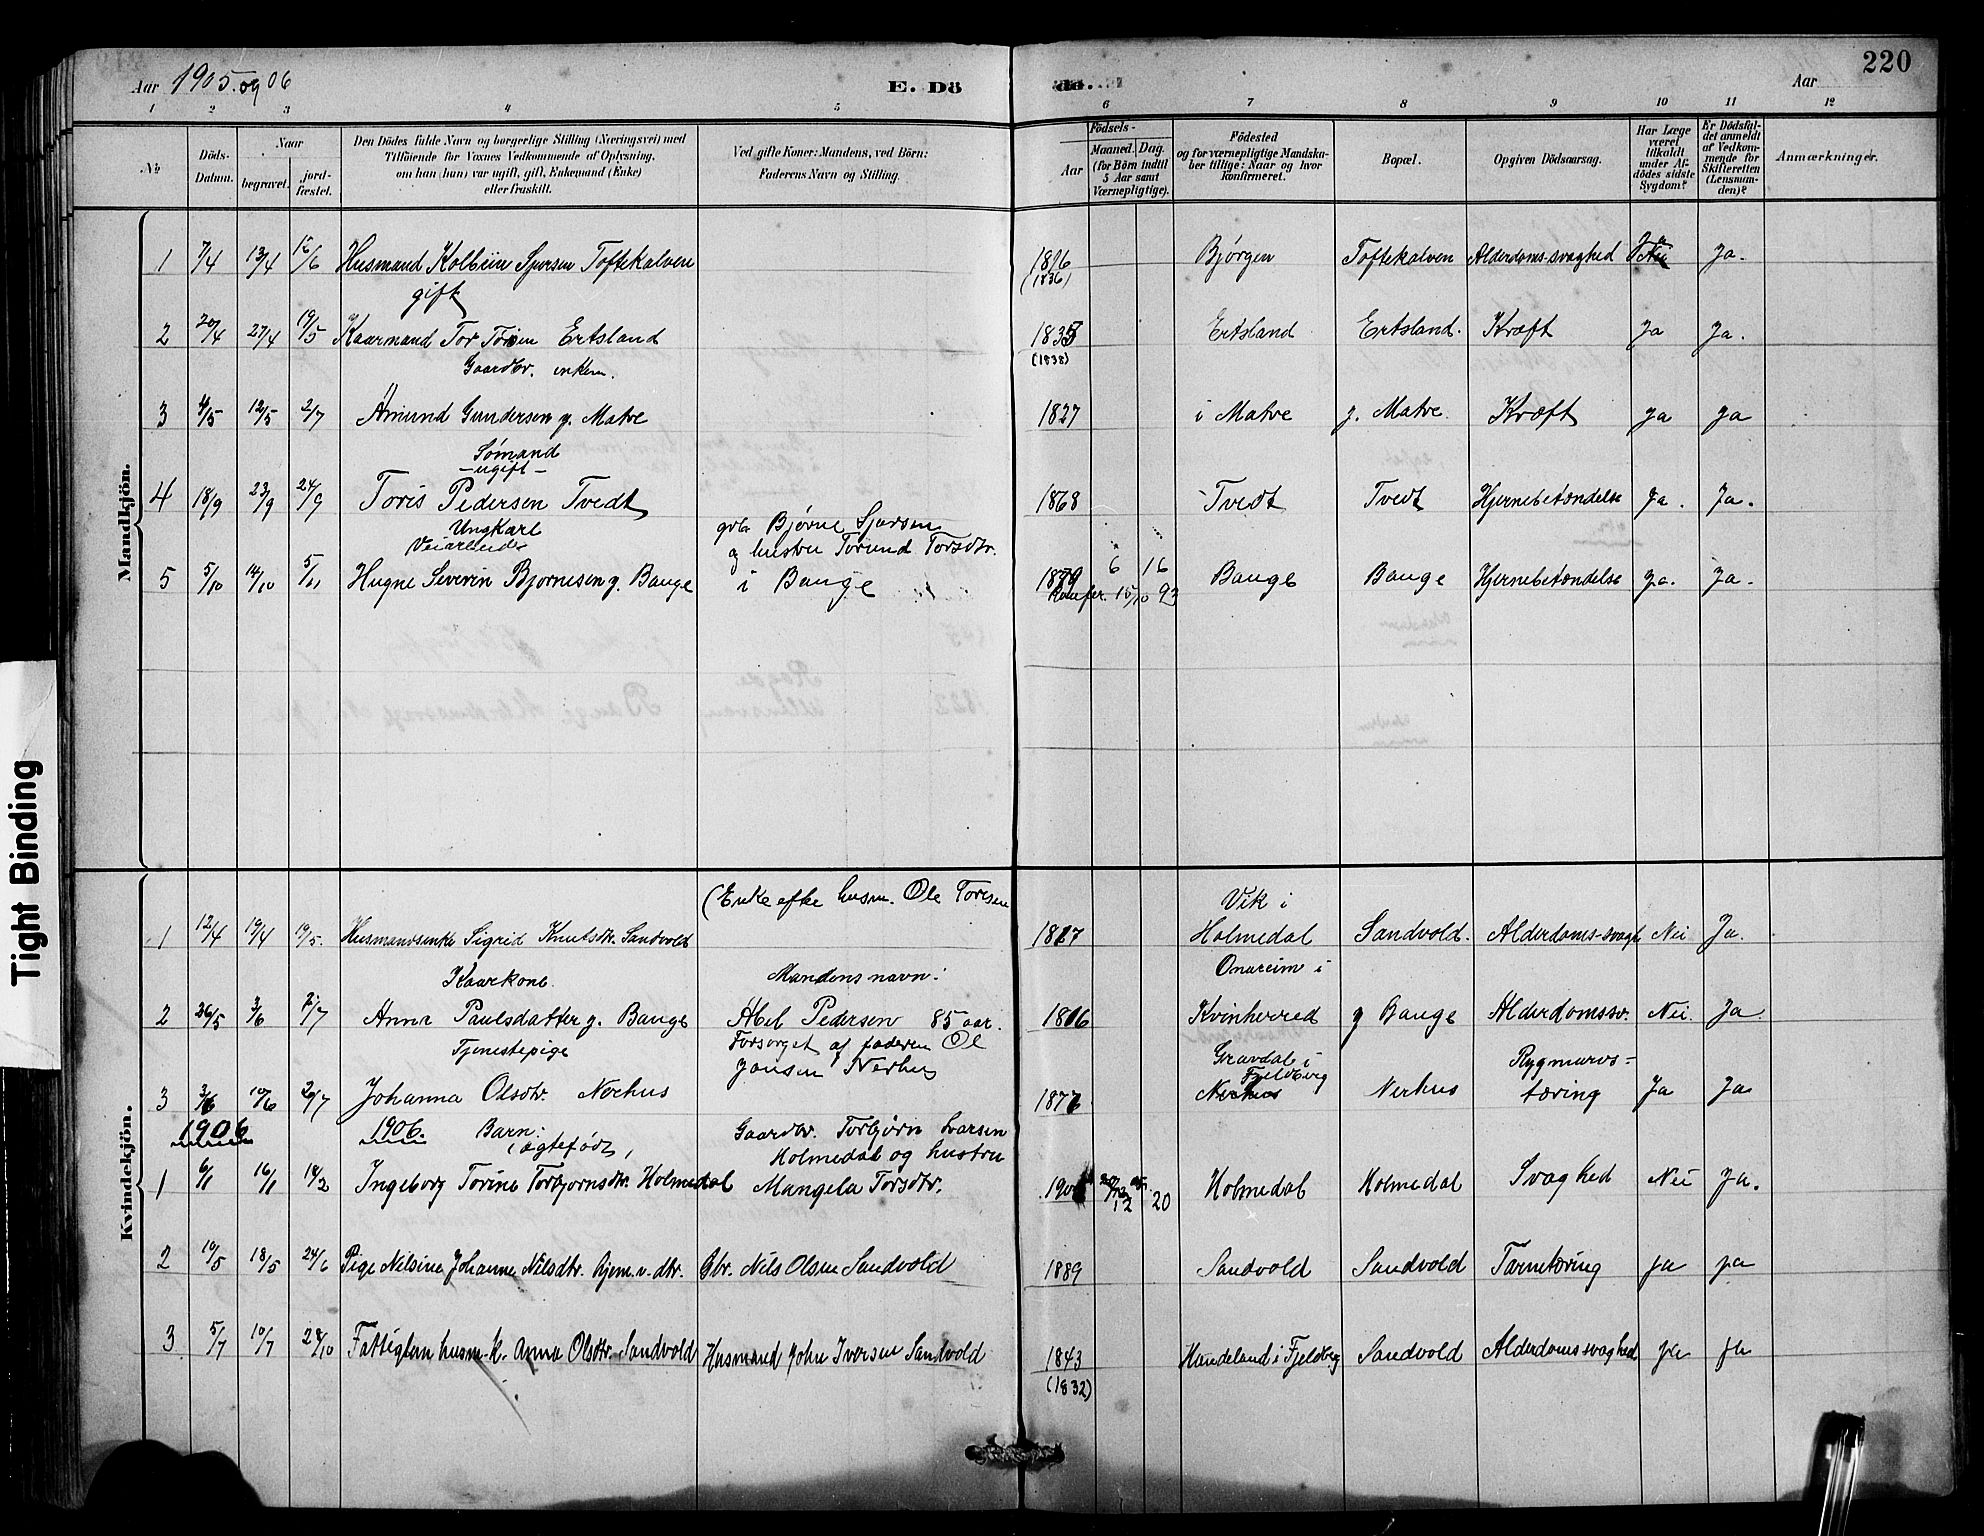 220
Aar 1905 og 06
E. Dö
de.
Aar
1 2 3 4 5 6 7 8 9 10 11 12
No
Döds-Datum.
Naar
begravet.
jord-fæstet.
Den Dödes fulde Navn og borgerlige Stilling (Næringsvei) med
Tilföiende for Voxnes Vedkommende af Oplysning,
om han (hun) var ugift, gift, Enkemand (Enke)
eller fraskilt.
Ved gifte Koner: Mandens, ved Börn:
Faderens Navn og Stilling.
Födsels-
Aar
Maaned. Dag.
(for Börn indtil
5 Aar samt
Værnepligtige).
Födested
og for værnepligtige Mandska-
ber tillige: Naar og hvor
konfirmeret.
Bopæl.
Opgiven Dödsaarsag.
Har Læge
været
tilkaldt
under Af-
dödes sidste
Sygdom?
Er Dödsfal-
det anmeldt
af Vedkom-
mende for
Skifteretten
(Lensman-
den)?
Anmærkninger.
Mandkjön.
1 7/4 13/4 15/6 Husmand Kolbein Sjursen Toftekalven 1816 Bjørgen Toftekalven Alderdoms-svaghed Ja Nei Ja.
gift (1836)
2 20/4 27/4 19/5 Kaarmand Tor Torsen Ertsland 1835 Ertsland Ertsland. Kræft Ja Ja.
Gaardbr. enkem. (1838)
3 4/5 12/5 2/7 Amund Gundersen y. Matre 1827 i Matre y. Matre Kræft Ja Ja
Sømand
- ugift -
4 18/9 23/9 24/9 Toris Pedersen Tvedt 1868 Tvedt Tvedt Hjernebetændelse Ja. Ja.
Ungkarl
Veiarbeider
gbr. Bjørne Sjursen
og hustru Torund Torsdtr.
5 5/10 14/10 5/11 Hugne Severin Bjørnesen y. Bauge i Bauge 1879 6 16 Bauge Bauge Hjernebetændelse Ja. Ja.
Konfir. 15/10 93
Tight Binding
Kvindekjön.
(Enke efter husm. Ole Toresen Vik i
1 12/4 19/4 19/5. Husmandsenke Sigrid Knutsdtr. Sandvold 1817 Holmedal Sandvold. Alderdoms-svagh Nei Ja.
Kaarkone Mandens navn: Onareim i
2 26/5 3/6 2/7 Anna Paulsdatter y. Bauge Abel Pedersen 85 aar. 1816 Kvinherred y Bauge Alderdomssv. Nei Ja
Tjenestepige Forsørget af faderen Ole
Jonsen Nerhus Gravdal i Fjeldberg Rygmarvs-
3 3/6 10/6 29/7 Johanna Olsdtr. Nerhus 1877 Nerhus Nerhus tæring Ja Ja
1906 1906. Barn: Gaardbr. Torbjørn Ivarsen
(ægtefødt) Holmedal og hustru
1 6/1 16/1 18/2 Ingeborg Torine Torbjørnsdtr. Holmedal Mangela Torsdtr. 12 20 Holmedal Holmedal Svaghed Nei Ja.
2 10/5 18/5 24/6 Pige Nilsine Johanne Nilsdtr. hjem.v. dtr. Gbr. Nils Olsen Sandvold 1889 Sandvold Sandvold Tarmtæring ja ja
3 5/7 10/7 28/10 Fattiglem husm.k. Anna Olsdtr. Sandvold Husmand John Iversen Sandvold 1843 Handeland i Fjeldberg Sandvold Alderdomssvaghed ja ja
(1832)